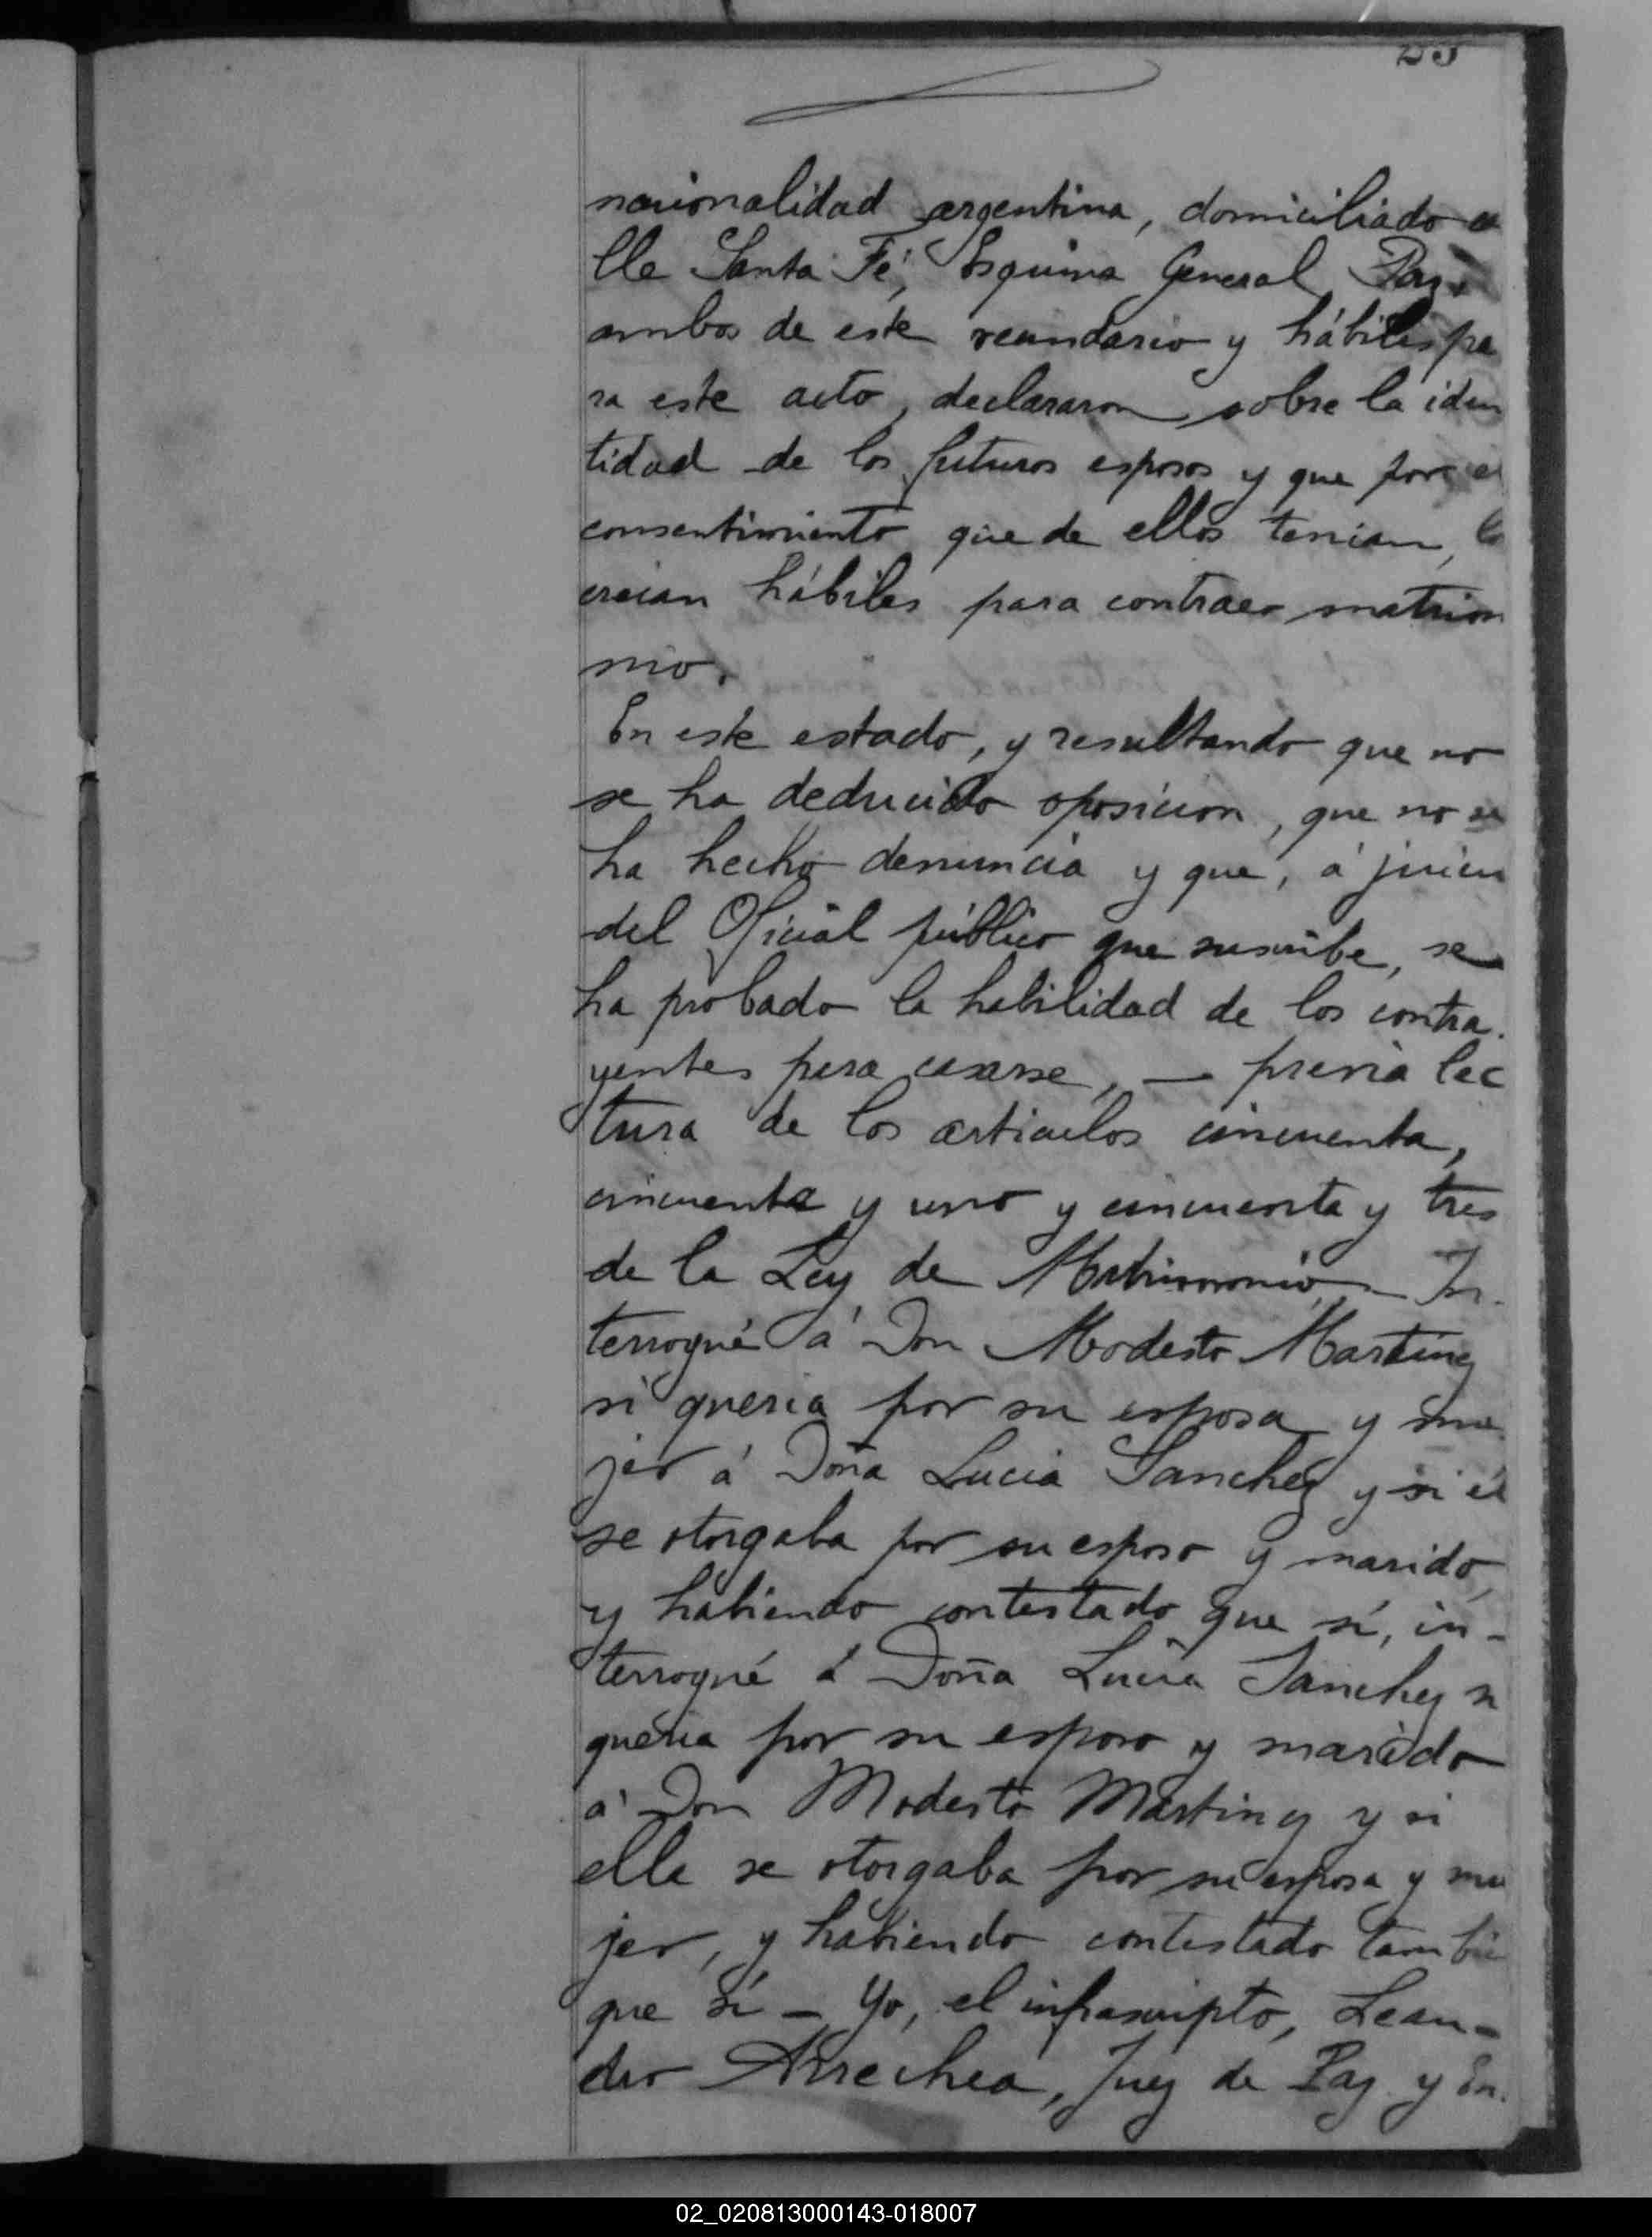 nacionalidad argentina, domiciliado ca
lle Santa Fé, Esquina General Paz,
ambos de este vecindario y hábiles pa
ra este acto, declararon sobre la iden
tidad de los futuros esposos y que por el
consentimiento que de ellos tenian, los
creian hábiles para contraer matrimo
nio.
En este estado, y resultando que no
se ha deducido oposicion, que no se
ha hecho denuncia y que, á juicio
del Oficial público que suscribe, se
ha probado la habilidad de los contra.
yentes para casarse, — previa lec
tura de los articulos cincuenta,
cincuenta y uno y cincuenta y tres
de la Ley de Matrimonio – In.
terrogué á Don Modesto Martinez
si queria por su esposa y mu
jer á Doña Lucia Sanchez y si él
se otorgaba por su esposo y marido,
y habiendo contestado que sí, in-
terrogué á Doña Lucia Sanchez si
queria por su esposo y marido
á Don Modesto Martinez y si
ella se otorgaba por su esposa y mu
jer, y habiendo contestado tambie
que sí – Yo, el infrascripto, Lean-
dro Arrechea, Juez de Paz y En.
02_020813000143-018007